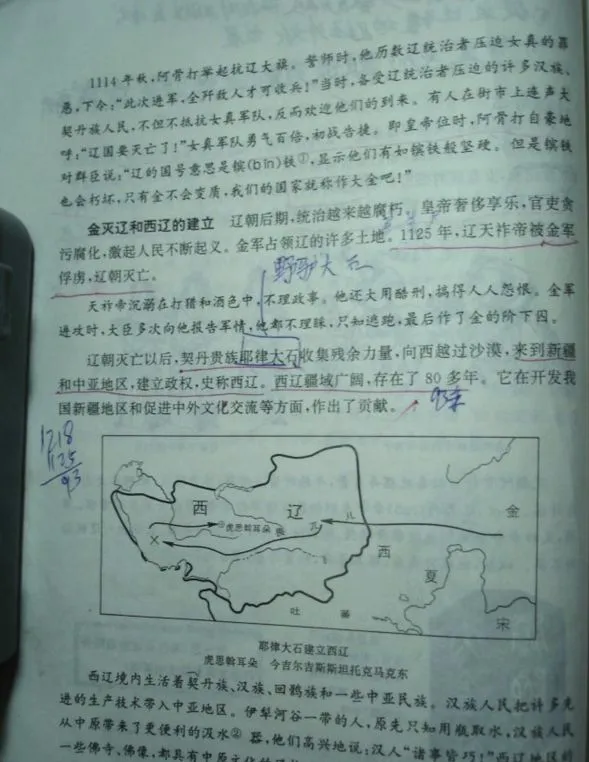 1114年秋,阿骨打举起抗辽大旗。誓师时,他历数辽统治者压迫女真的罪
恶,下令:“此次进军,全歼敌人才可收兵!”当时,备受辽统治者压迫的许多汉族、
契丹族人民,不但不抵抗女真军队,反而欢迎他们的到来。有人在街市上连声大
呼:“辽国要灭亡了!”女真军队勇气百倍,初战告捷。即皇帝位时,阿骨打自豪地
对群臣说:“辽的国号意思是镔(bīn)铁①,显示他们有如镔铁般坚硬。但是镔铁
也会朽坏,只有金不会变质,我们的国家就称作大金吧!”
金灭辽和西辽的建立 辽朝后期,统治越来越腐朽。皇帝奢侈享乐,官吏贪
污腐化,激起人民不断起义。金军占领辽的许多土地。1125年,辽天祚帝被金军
俘虏,辽朝灭亡。
野驴大石
天祚帝沉溺在打猎和酒色中,不理政事。他还大用酷刑,搞得人人怨恨。金军
进攻时,大臣多次向他报告军情,他都不理睬,只知逃跑,最后作了金的阶下囚。
辽朝灭亡以后,契丹贵族耶律大石收集残余力量,向西越过沙漠,来到新疆
和中亚地区,建立政权,史称西辽。西辽疆域广阔,存在了80多年。它在开发我
国新疆地区和促进中外文化交流等方面,作出了贡献。
1218
1125
93
西 辽
虎思斡耳朵
裴 几 儿
金
西
夏
吐 蕃
宋
耶律大石建立西辽
虎思斡耳朵 今吉尔吉斯斯坦托克马克东
西辽境内生活着契丹族、汉族、回鹘族和一些中亚民族。汉族人民把许多先
进的生产技术带入中亚地区。伊犁河谷一带的人,原先只知用瓶取水,汉族人民
从中原带来了更便利的汲水②器,他们高兴地说:汉人“诸事皆巧!”西辽地区的
一些佛寺、佛像,都具有中原文化的